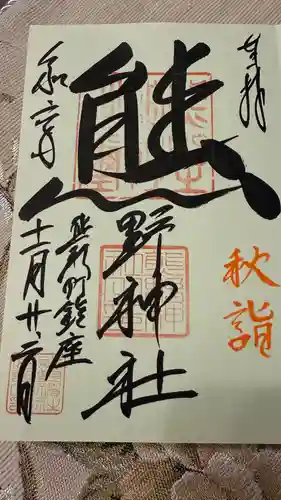 奉拝
秋詣
熊野神社
熊野鎮座
令和六年
十一月廿六日